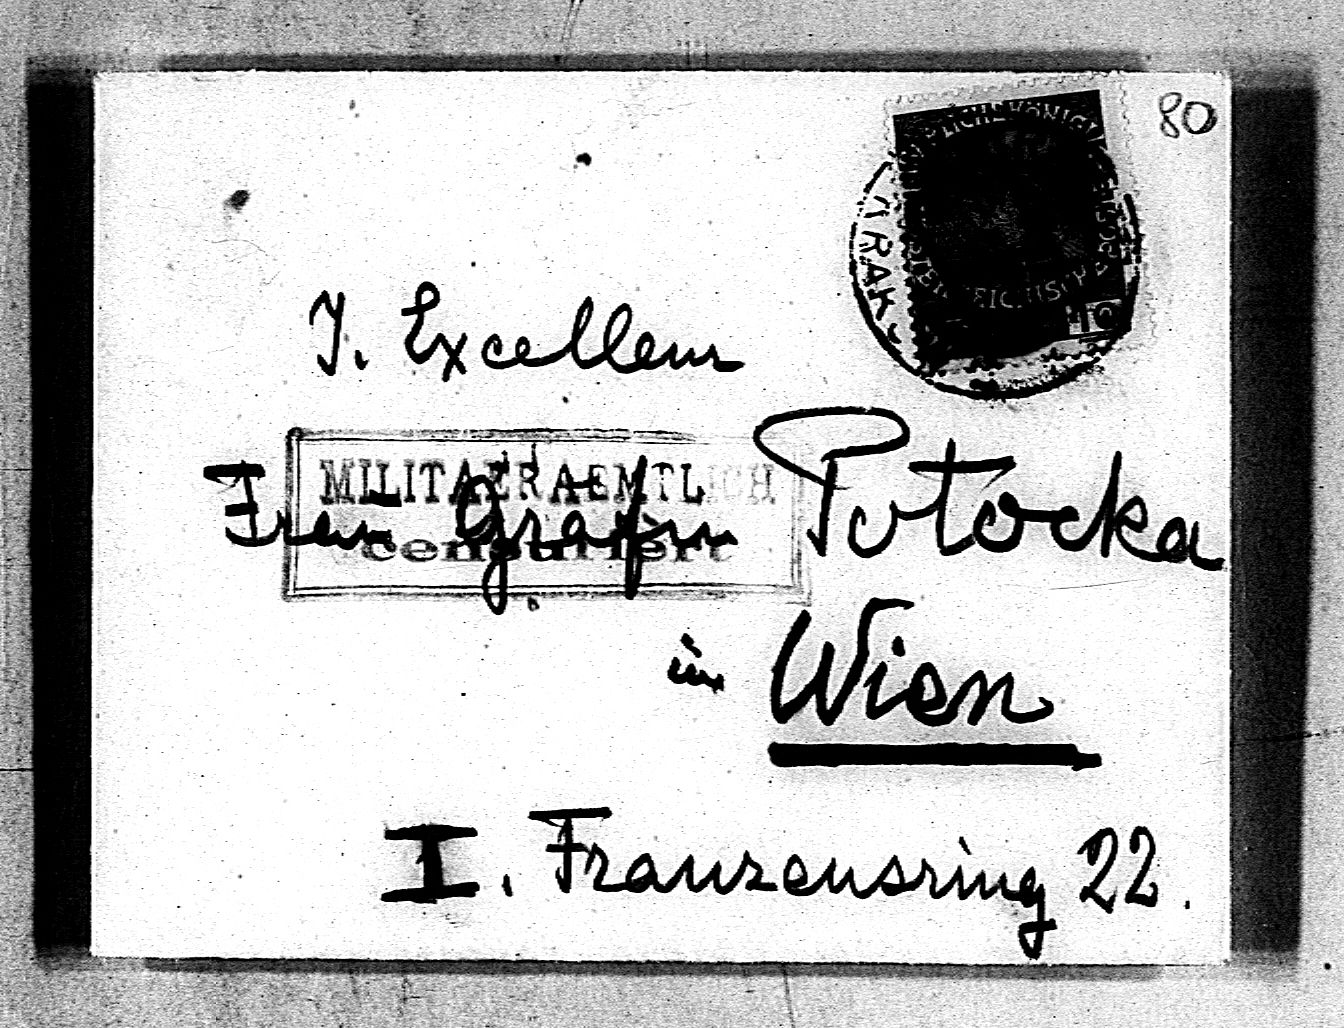 80
KAISERLICHE KÖNIGLICHE
ÖSTERREICHISCHE POST
10
KRAK
J. Excellenz
MILITAERAEMTLICH
censuriert
Frau Gräfin Potocka
in Wien
I. Franzensring 22.